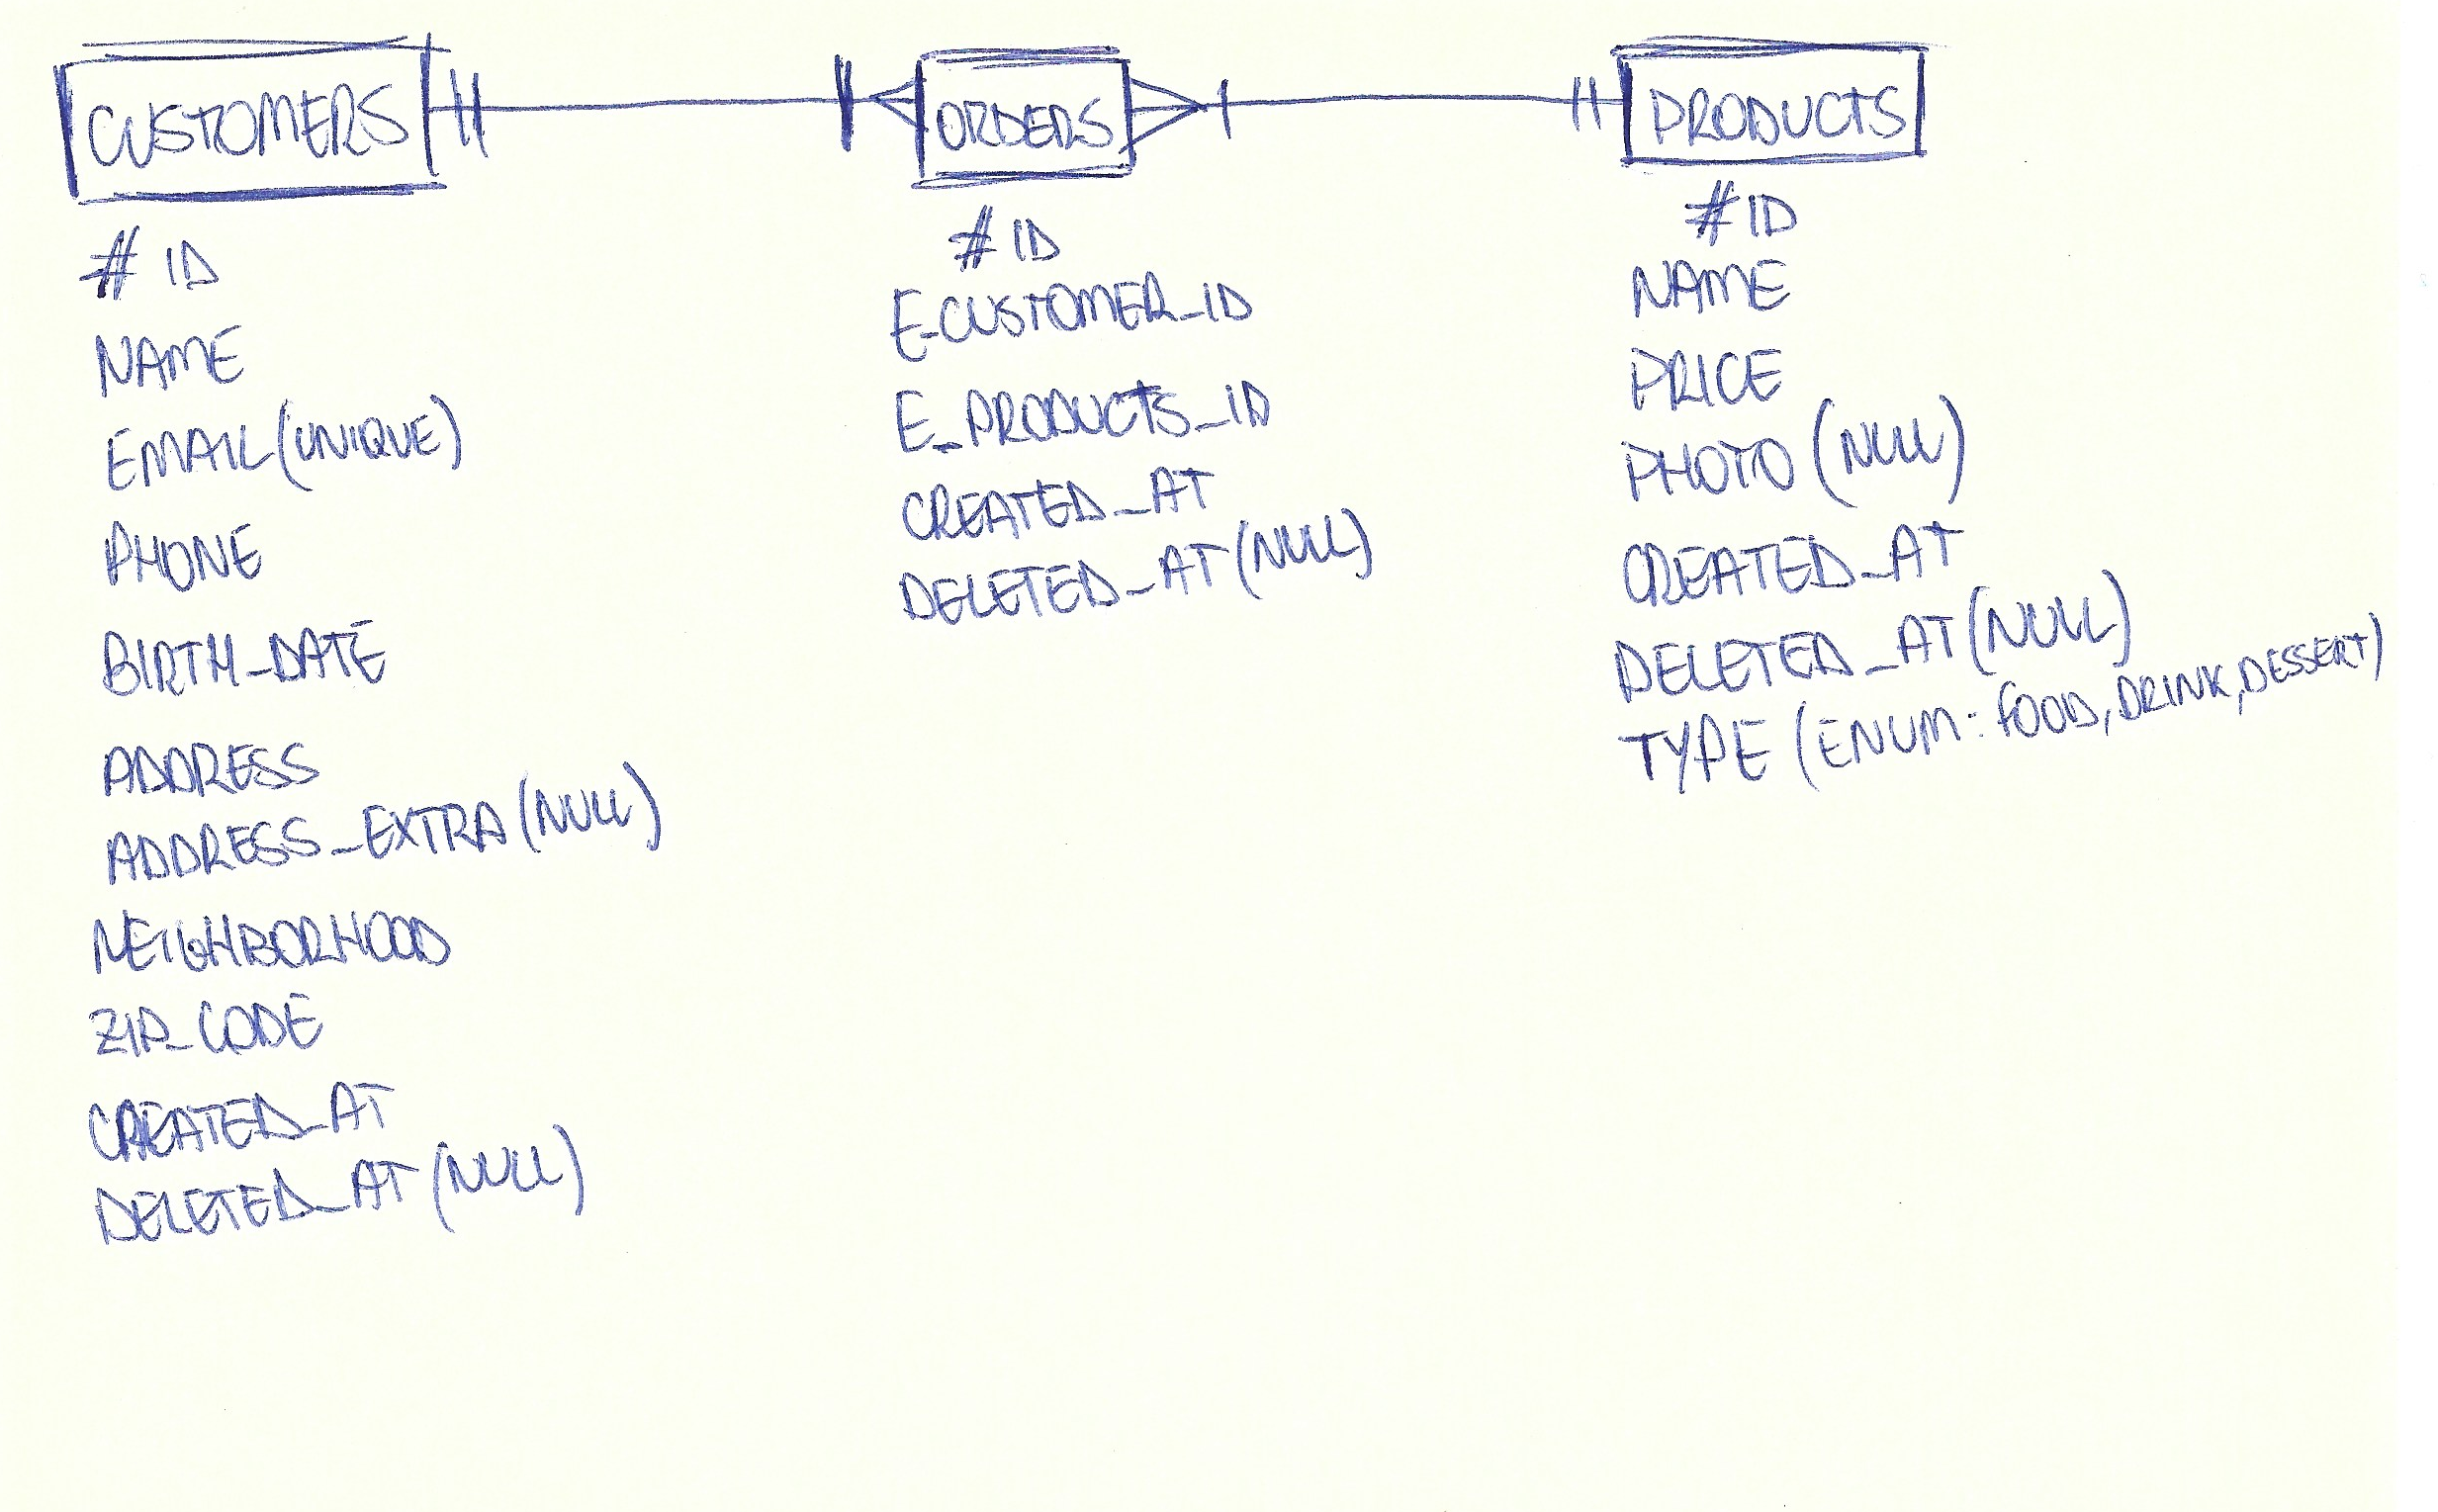 CUSTOMERS
# ID
NAME
EMAIL (UNIQUE)
PHONE
BIRTH_DATE
ADDRESS
ADDRESS_EXTRA (NULL)
NEIGHBORHOOD
ZIP_CODE
CREATED_AT
DELETED_AT (NULL)
ORDERS
# ID
E_CUSTOMER_ID
E_PRODUCTS_ID
CREATED_AT
DELETED_AT (NULL)
PRODUCTS
# ID
NAME
PRICE
PHOTO (NULL)
CREATED_AT
DELETED_AT (NULL)
TYPE (ENUM: FOOD, DRINK, DESSERT)